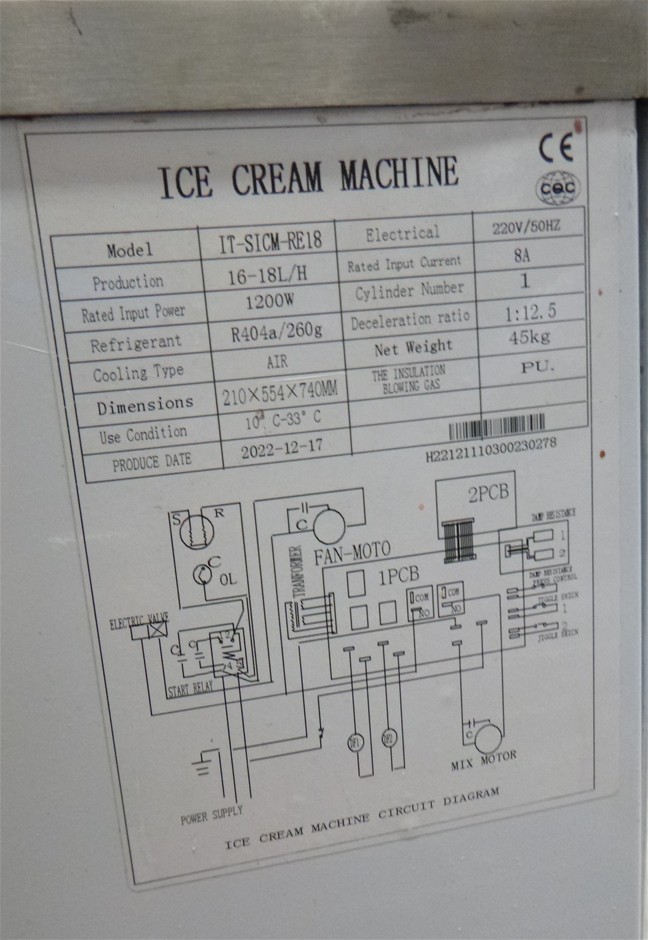 CE
CQC
ICE CREAM MACHINE
Model IT-SICM-RE18 Electrical 220V/50HZ
Production 16-18L/H Rated Input Current 8A
Rated Input Power 1200W Cylinder Number 1
Refrigerant R404a/260g Deceleration ratio 1:12.5
Cooling Type AIR Net Weight 45kg
Dimensions 210×554×740MM THE INSULATION BLOWING GAS PU.
Use Condition 10° C-33° C
PRODUCE DATE 2022-12-17
H22121110300230278
2PCB
S R
C
FAN-MOTO
TRANFORMER
1PCB
COM
NO
COM
NO
DAMP RESISTANCE
1
2
DAMP RESISTANCE
PRESS CONTROL
1
2
C
OL
ELECTRIC VALVE
START RELAY
C
MIX MOTOR
POWER SUPPLY
ICE CREAM MACHINE CIRCUIT DIAGRAM